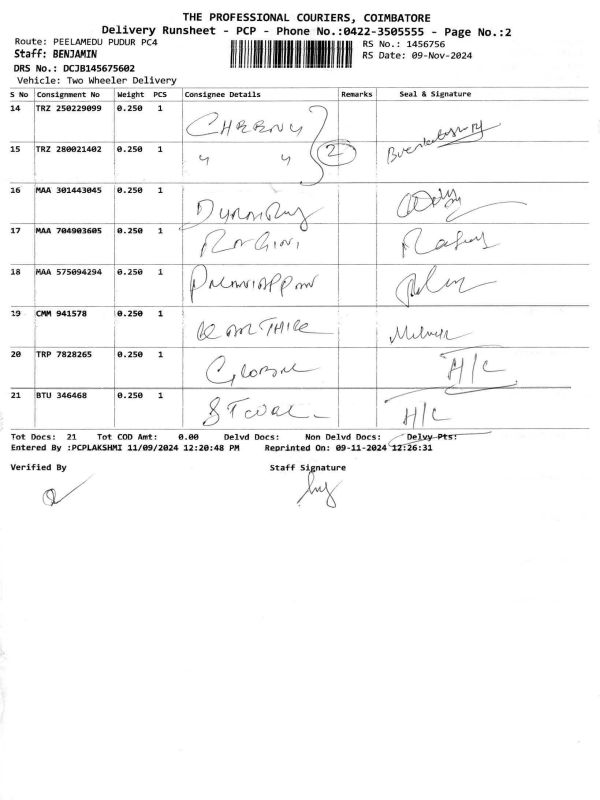 THE PROFESSIONAL COURIERS, COIMBATORE
Delivery Runsheet - PCP - Phone No.:0422-3505555 - Page No.:2
Route: PEELAMEDU PUDUR PC4
RS No.: 1456756
Staff: BENJAMIN
RS Date: 09-Nov-2024
DRS No.: DCJB145675602
Vehicle: Two Wheeler Delivery
S No Consignment No Weight PCS Consignee Details Remarks Seal & Signature
14 TRZ 250229099 0.250 1 CHERRNY
15 TRZ 280021402 0.250 1 " " 2
16 MAA 301443045 0.250 1
17 MAA 704903605 0.250 1
18 MAA 575094294 0.250 1
19 CMM 941578 0.250 1
20 TRP 7828265 0.250 1 H/C
21 BTU 346468 0.250 1 H/C
Tot Docs: 21 Tot COD Amt: 0.00 Delvd Docs: Non Delvd Docs: Delvy Pts:
Entered By :PCPLAKSHMI 11/09/2024 12:20:48 PM Reprinted On: 09-11-2024 12:26:31
Verified By Staff Signature